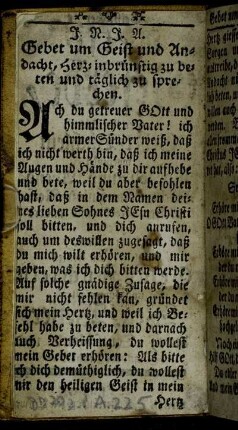 J. N. J. A.
Gebet um Geist und An-
dacht, Hertz-inbrünstig zu be-
ten und täglich zu spre-
chen.
Ach du getreuer GOtt und
himmlischer Vater! ich
armer Sünder weiß, daß
ich nicht werth bin, daß ich meine
Augen und Hände zu dir aufhebe
und bete, weil du aber befohlen
hast, daß in dem Namen dei-
nes lieben Sohnes JEsu Christi
soll bitten, und dich anrufen,
auch um deswillen zugesagt, daß
du mich wilt erhören, und mir
geben, was ich dich bitten werde.
Auf solche gnädige Zusage, die
mir nicht fehlen kan, gründet
sich mein Hertz, und weil ich Be-
fehl habe zu beten, und darnach
auch Verheissung, du wollest
mein Gebet erhören: Als bitte
ich dich demüthiglich, du wollest
mir den heiligen Geist in mein
Hertz
A.225